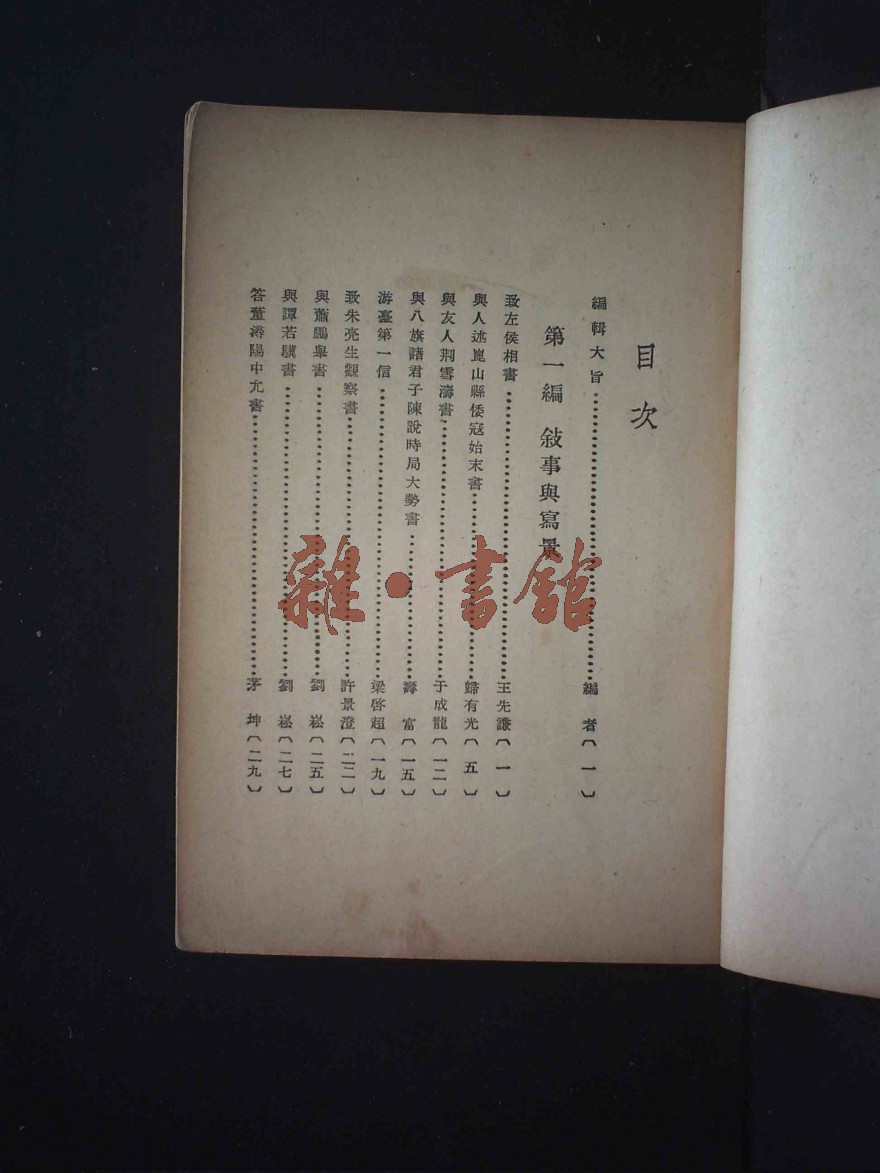 目次
編輯大旨……編者〔一〕
第一編 敍事與寫景
致左侯相書……王先謙〔一〕
與人述崑山縣倭寇始末書……歸有光〔五〕
與友人荆雪濤書……于成龍〔一二〕
與八旗諸君子陳說時局大勢書……壽富〔一五〕
游臺第一信……梁啓超〔一九〕
致朱亮生觀察書……許景澄〔二二〕
與蕭鵬舉書……劉崧〔二五〕
與譚若驥書……劉崧〔二七〕
答董潯陽中允書……茅坤〔二九〕
雜·書館